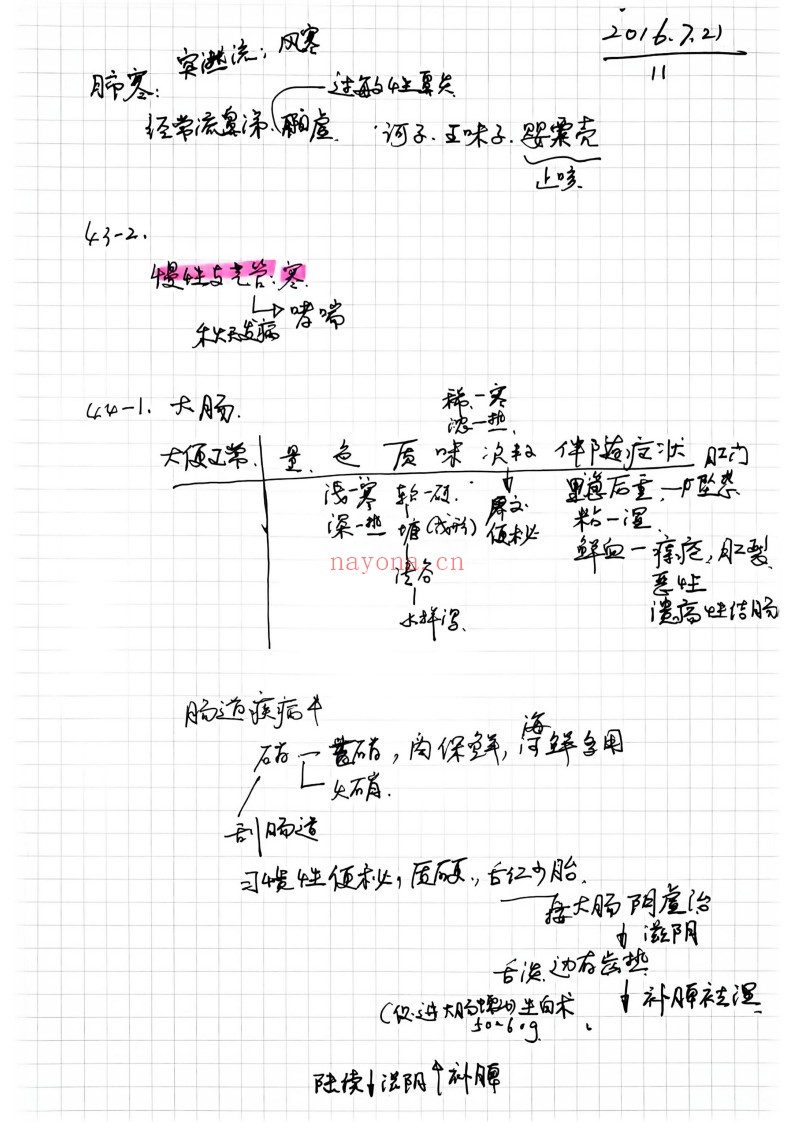 2016.7.21
11
肺寒: 突然流; 风寒
过敏性鼻炎
经常流鼻涕、肺虚. 诃子、五味子、罂粟壳
止咳.
43-2.
慢性支气管: 寒.
哮喘
秋天发病
44-1. 大肠.
稀一寒
浓一热.
大便正常. 量. 色 质 味 次数 伴随症状 肛门
浅一寒 软一硬. 腹泻 里急后重, 一下坠感
深一热 溏(成形) 便秘 粘一湿.
鲜血一痔疮, 肛裂
nayona.cn
恶性
水样泻. 溃疡性结肠
肠道疾病
硝 一 芒硝, 肉保鲜, 海
河鲜多用
火硝.
刮肠道
习惯性便秘, 质硬, 舌红少胎.
按大肠阴虚治
滋阴
舌淡边有齿热
补脾祛湿
(促进大肠蠕动) 生白术
50~60g.
陆续↓滋阴↑补脾